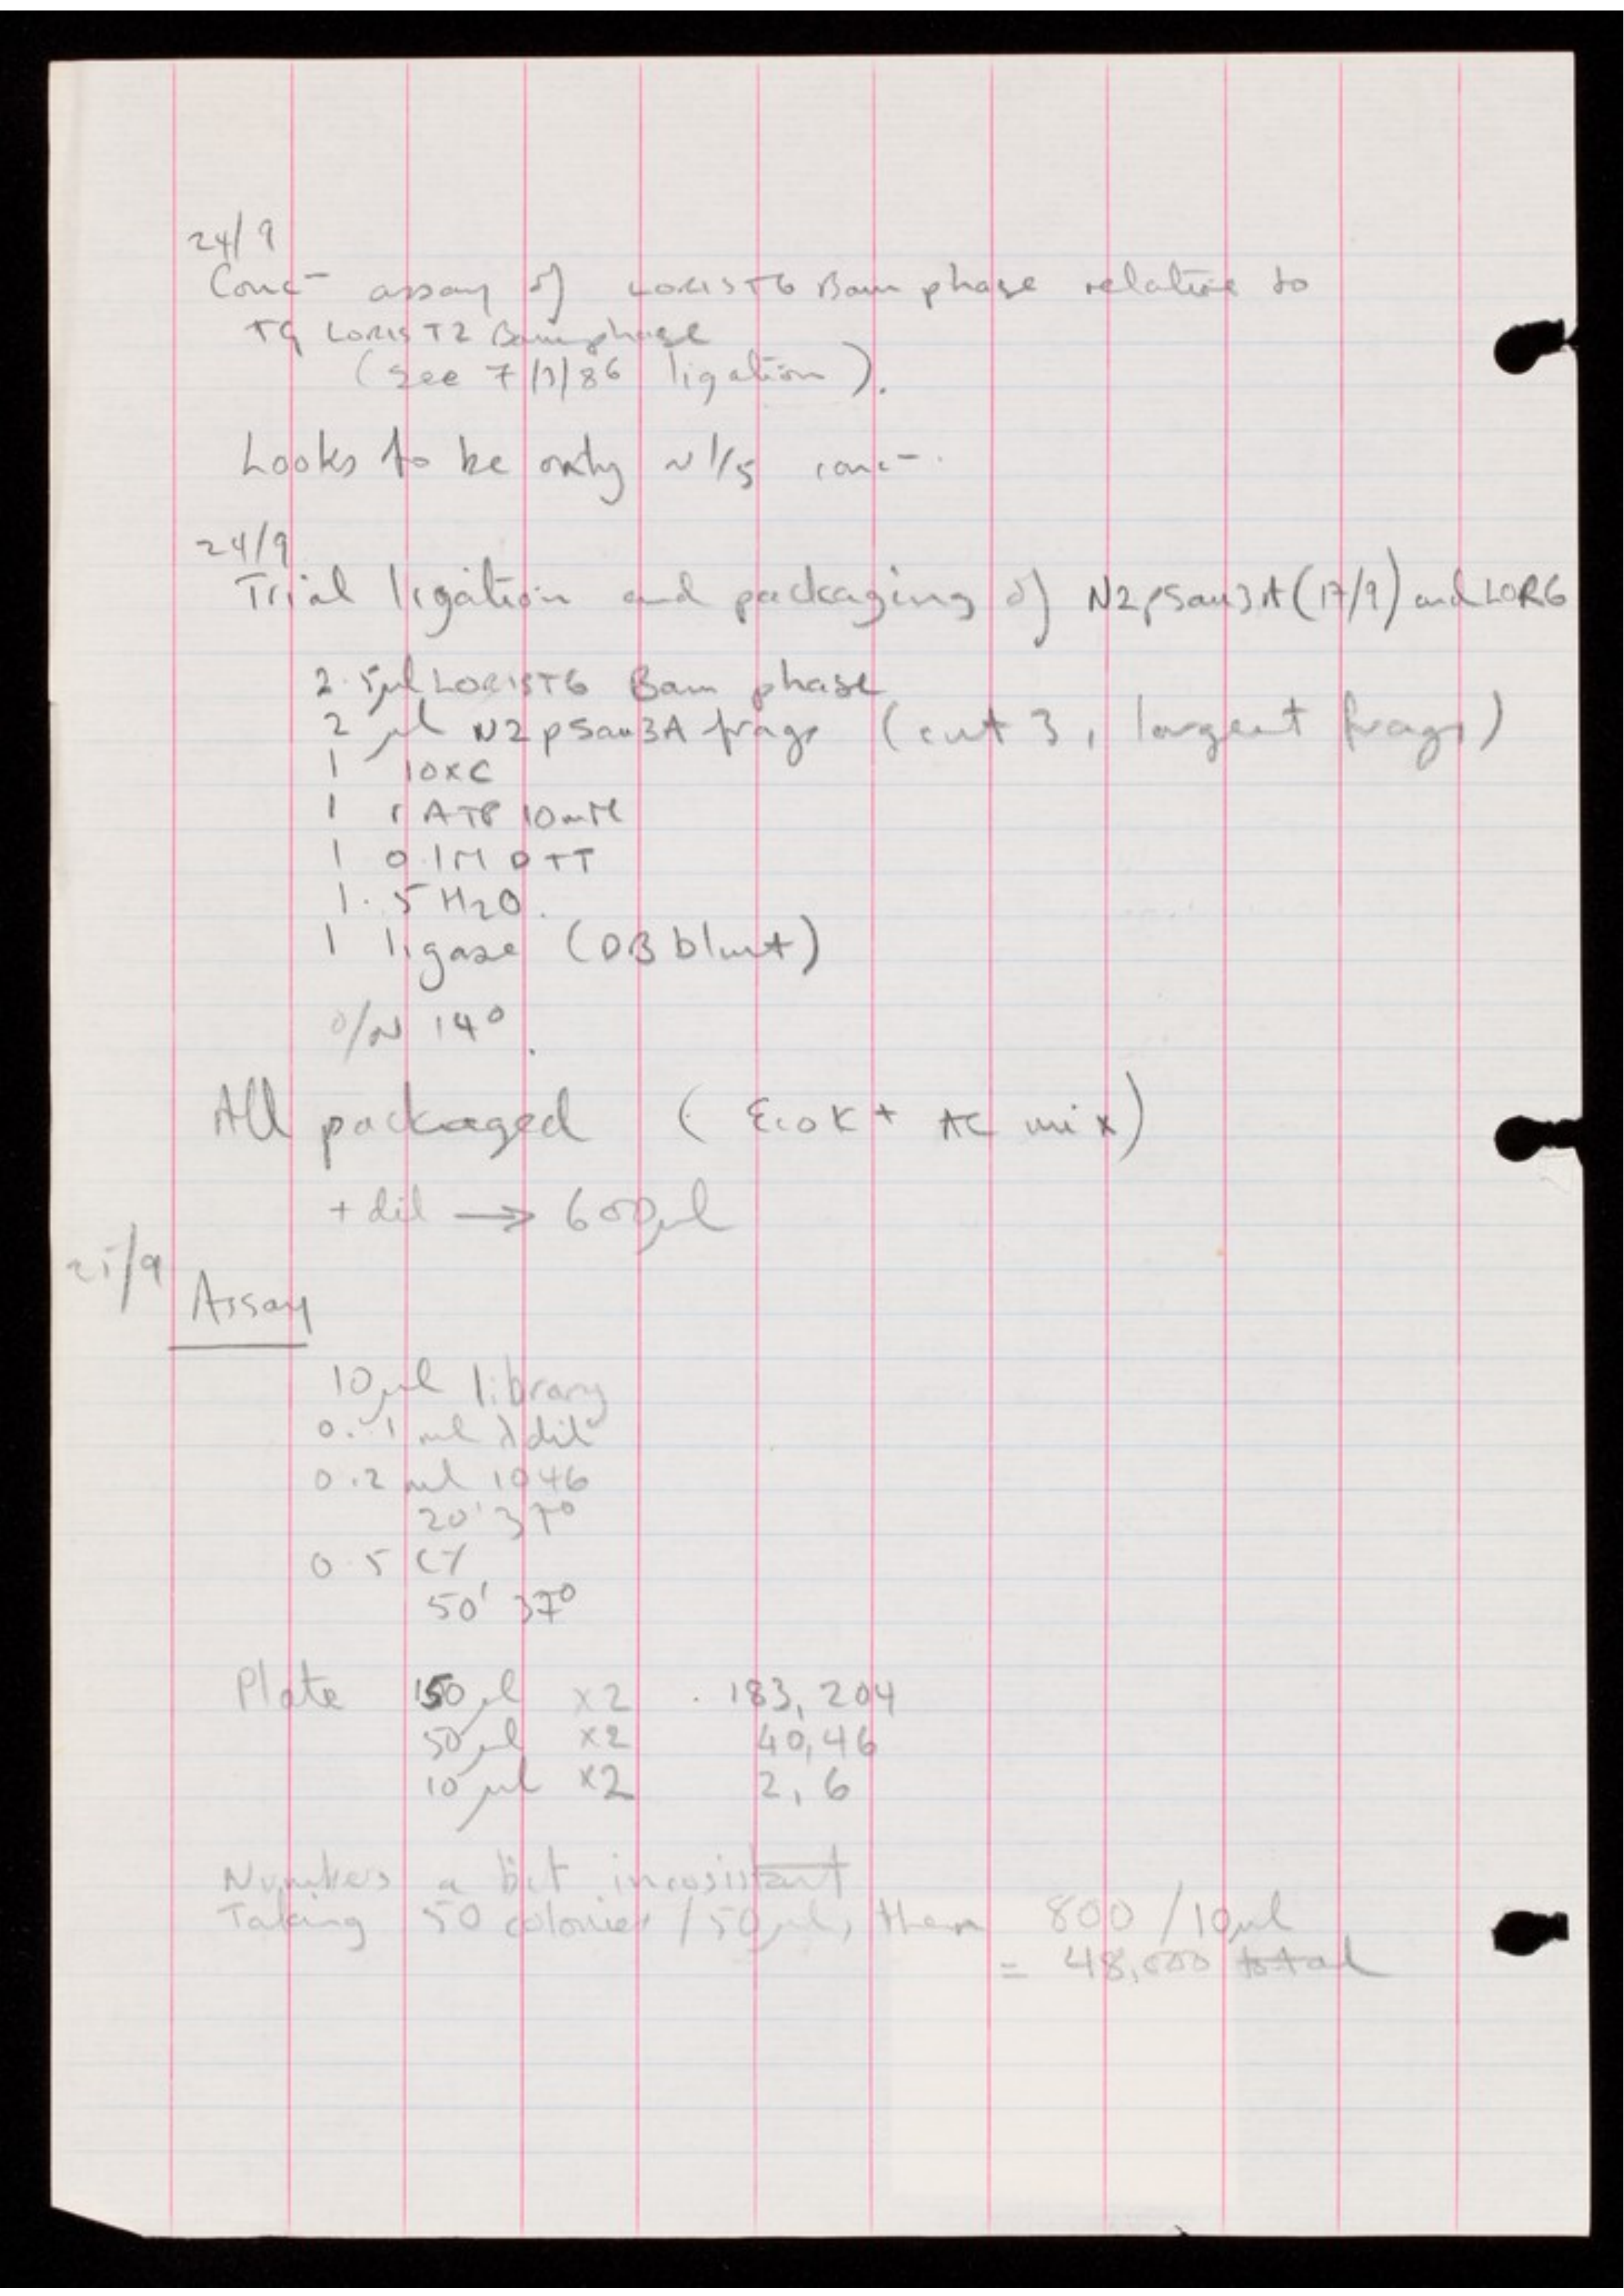 24/9
Conc⁻ assay of LORIST6 Bam phase relative to
TG LORIST2 Bam phase
(see 7/3/86 ligation).
Looks to be only ~1/5 conc⁻.
24/9
Trial ligation and packaging of N2pSau3A (17/9) and LOR6
2.5µl LORIST6 Bam phase
2 µl N2pSau3A frags (cut 3, largest frags)
1 10xC
1 rATP 10mM
1 0.1M DTT
1.5 H2O.
1 ligase (DB blunt)
O/N 14°.
All packaged (EcoK + AC mix)
+ dil → 600µl
25/9
Assay
10µl library
0.1 ml λdil
0.2 ml 1046
20' 37°
0.5 CY
50' 37°
Plate 150µl x2 183, 204
50µl x2 40, 46
10µl x2 2, 6
Numbers a bit incosistant
Taking 50 colonies / 50µl, then 800 / 10µl
= 48,000 total